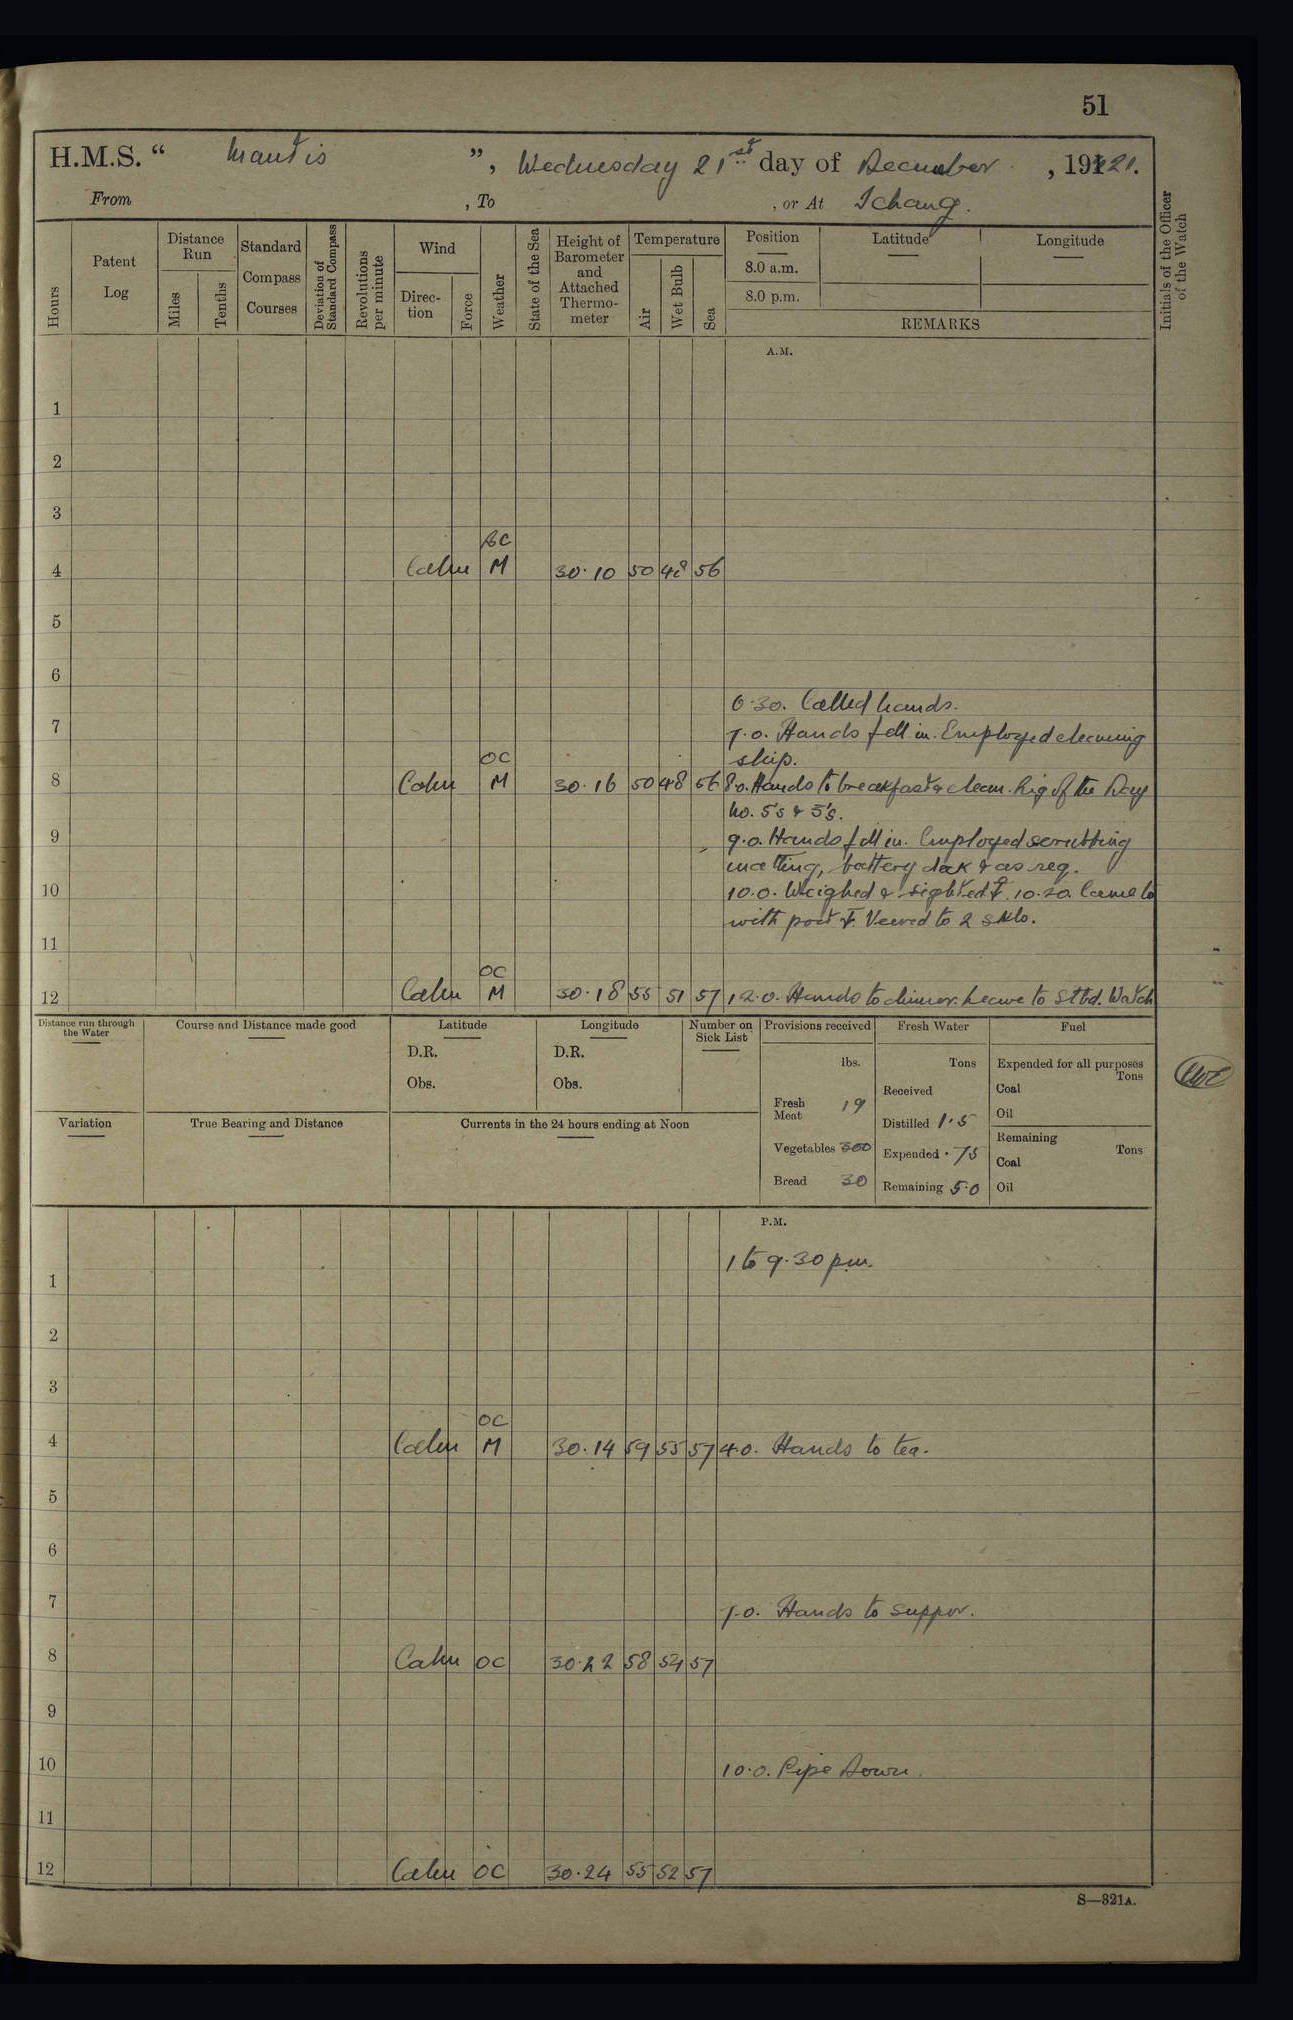 51
H.M.S. “ Mantis ”, Wednesday 21st day of December , 1921.
From , To , or At Ichang.
Hours
Patent Log
Distance Run
Miles
Tenths
Standard Compass Courses
Deviation of Standard Compass
Revolutions per minute
Wind
Direction
Force
Weather
State of the Sea
Height of Barometer and Attached Thermometer
Temperature
Air
Wet Bulb
Sea
Position
8.0 a.m.
8.0 p.m.
Latitude
Longitude
REMARKS
Initials of the Officer of the Watch
A.M.
1
2
3
BC
4 Calm M 30.10 50 48 56
5
6
6.30. Called hands.
7 7.0. Hands fell in. Employed cleaning
OC ship.
8 Calm M 30.16 50 48 56 8.0. Hands to breakfast & clean. Rig of the Day
No. 5's & 3's.
9 9.0. Hands fell in. Employed scrubbing
matting, battery deck & as req.
10 10.0. Weighed & sighted ⚓. 10.20. Came to
with port ⚓. Veered to 2 Skls.
11
OC
12 Calm M 30.18 55 51 57 12.0. Hands to dinner. Leave to Stbd. Watch
Distance run through the Water
Course and Distance made good
Latitude
D.R.
Obs.
Longitude
D.R.
Obs.
Number on Sick List
Provisions received
lbs.
Fresh Meat 19
Vegetables 300
Bread 30
Fresh Water
Tons
Received
Distilled 1.5
Expended .75
Remaining 5.0
Fuel
Expended for all purposes
Tons
Coal
Oil
Remaining
Tons
Coal
Oil
Variation
True Bearing and Distance
Currents in the 24 hours ending at Noon
P.M.
1 to 9.30 pm.
1
2
3
OC
4 Calm M 30.14 59 55 57 4.0. Hands to tea.
5
6
7 7.0. Hands to supper.
8 Calm OC 30.22 58 54 57
9
10 10.0. Pipe Down.
11
12 Calm OC 30.24 55 52 57
S—321A.